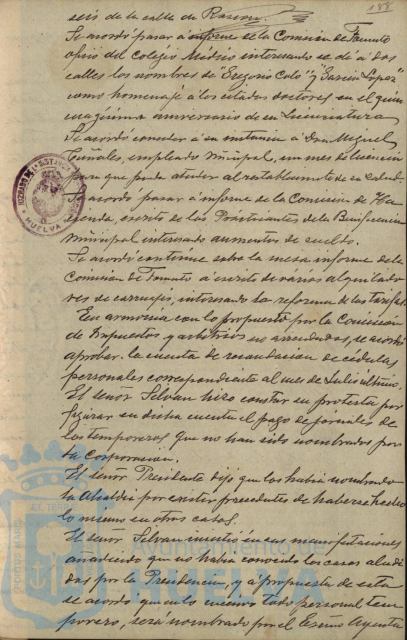 188
seis de la calle de Rascon.
Se acordó pasar á informe de la Comision de Fomento
oficio del Colegio Médico interesando se dé a dos
calles los nombres de "Gregorio Coló" y "García Lopez"
como homenaje á los citados doctores en el quin
cuagésimo aniversario de su Licenciatura
Se acordó conceder á su instancia á Don Miguel
empleado municipal, un mes de licencia
para que pueda atender al restablecimiento de su salud.
Se acordó pasar á informe de la Comision de Ha
cienda, escrito de los Practicantes de la Beneficencia
Municipal interesando aumentos de sueldo.
Se acordó continue sobre la mesa informe de la
Comision de Fomento á escrito de varios alquilado
res de carruajes, interesando la reforma de las tarifas.
En armonia con lo propuesto por la Comision
de Impuestos y arbitrios no arrendados, se acordó
aprobar la cuenta de recaudacion de cédulas
personales correspondiente al mes de Julio último.
El señor Selvan hizo constar su protesta por
figurar en dicha cuenta el pago de jornales de
los temporeros que no han sido nombrados por
la Corporacion.
El señor Presidente dijo que los habia nombrado
la Alcaldia por existir precedentes de haberse hecho
lo mismo en otros casos.
El señor Selvan insistió en sus manifestaciones
añadiendo que no habia conocido los casos aludi
dos por la Presidencia, y á propuesta de esta
se acordó que en lo sucesivo todo personal tem
porero, sera nombrado por el Excmo Ayunta
HUELVA